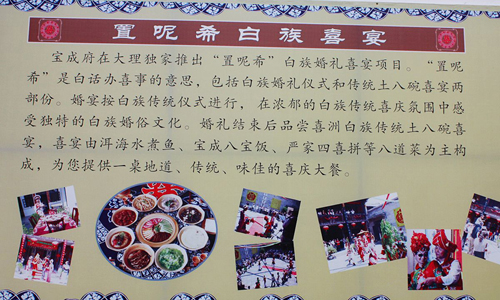 置呢希白族喜宴
宝成府在大理独家推出“置呢希”白族婚礼喜宴项目。“置呢
希”是白话办喜事的意思，包括白族婚礼仪式和传统土八碗喜宴两
部份。婚宴按白族传统仪式进行，在浓郁的白族传统喜庆氛围中感
受独特的白族婚俗文化。婚礼结束后品尝喜洲白族传统土八碗喜
宴，喜宴由洱海水煮鱼、宝成八宝饭、严家四喜拼等八道菜为主构
成，为您提供一桌地道、传统、味佳的喜庆大餐。